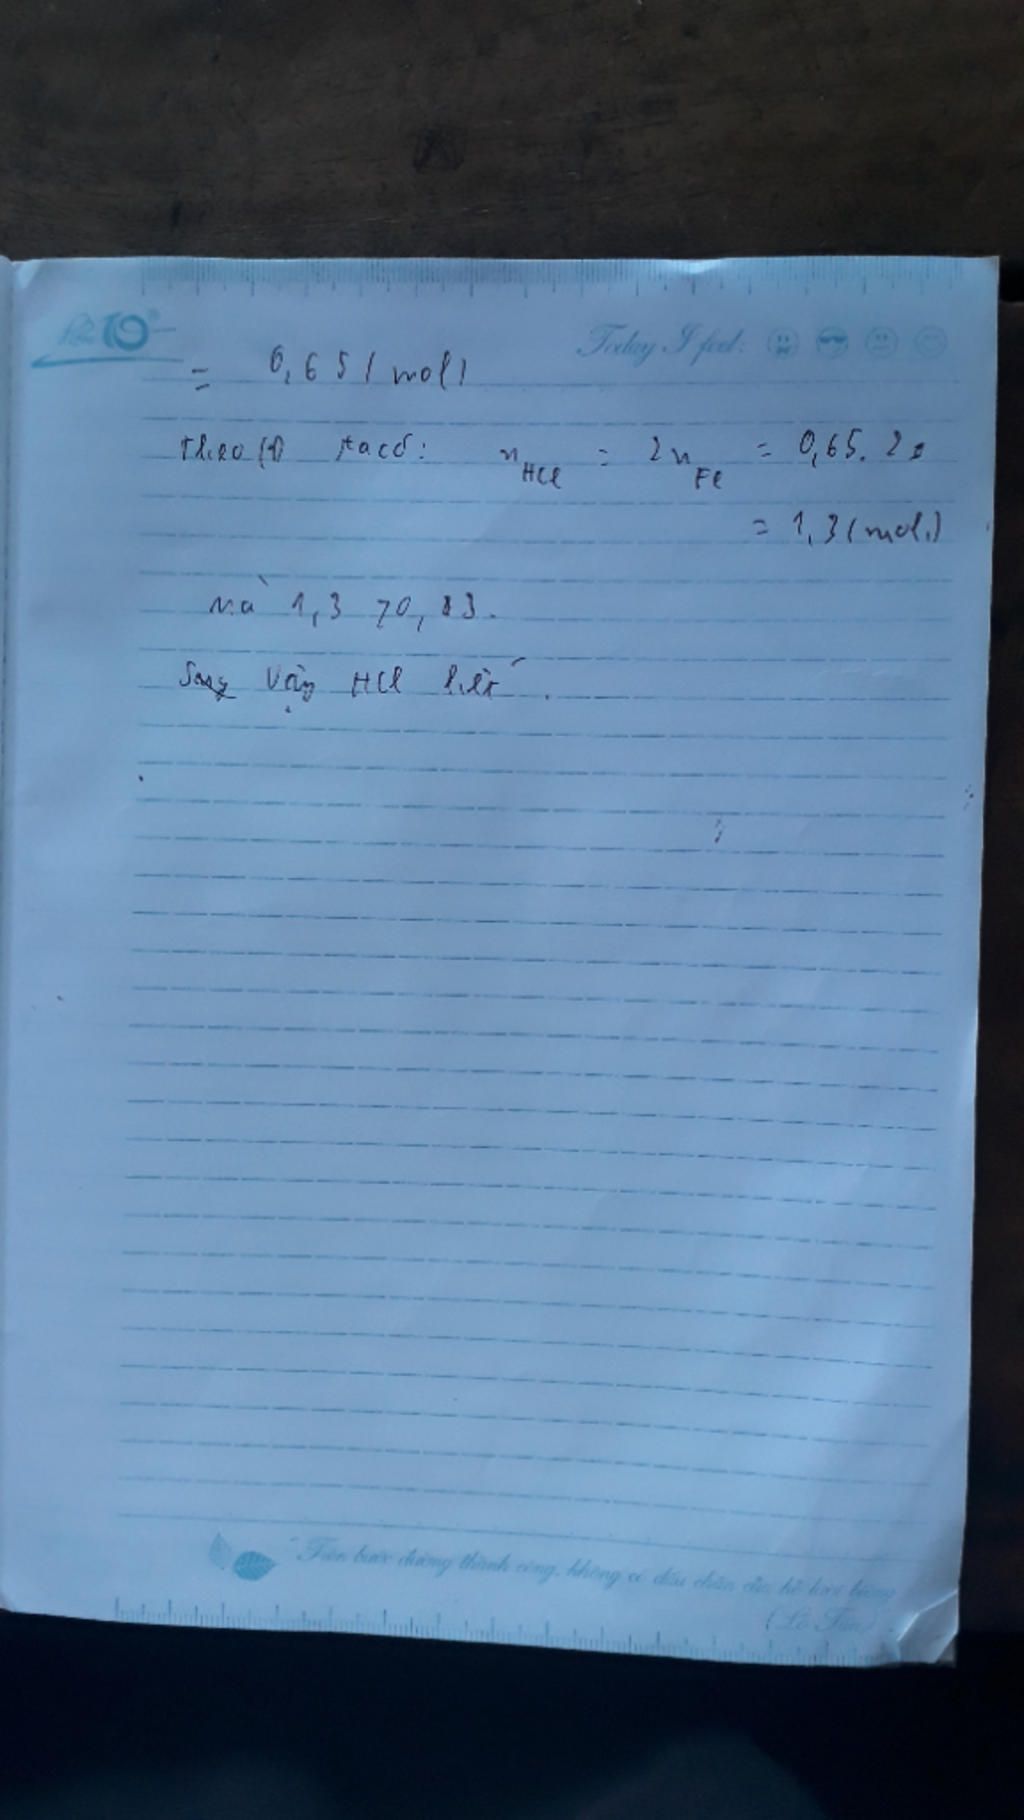 10
Today I feel:
= 0,65 (mol)
theo (1) ta có: n HCl = 2n Fe = 0,65.2
= 1,3 (mol)
mà 1,3 > 0,83.
Vậy HCl hết.
"Trên bước đường thành công, không có dấu chân của kẻ lười biếng
(Lỗ Tấn)